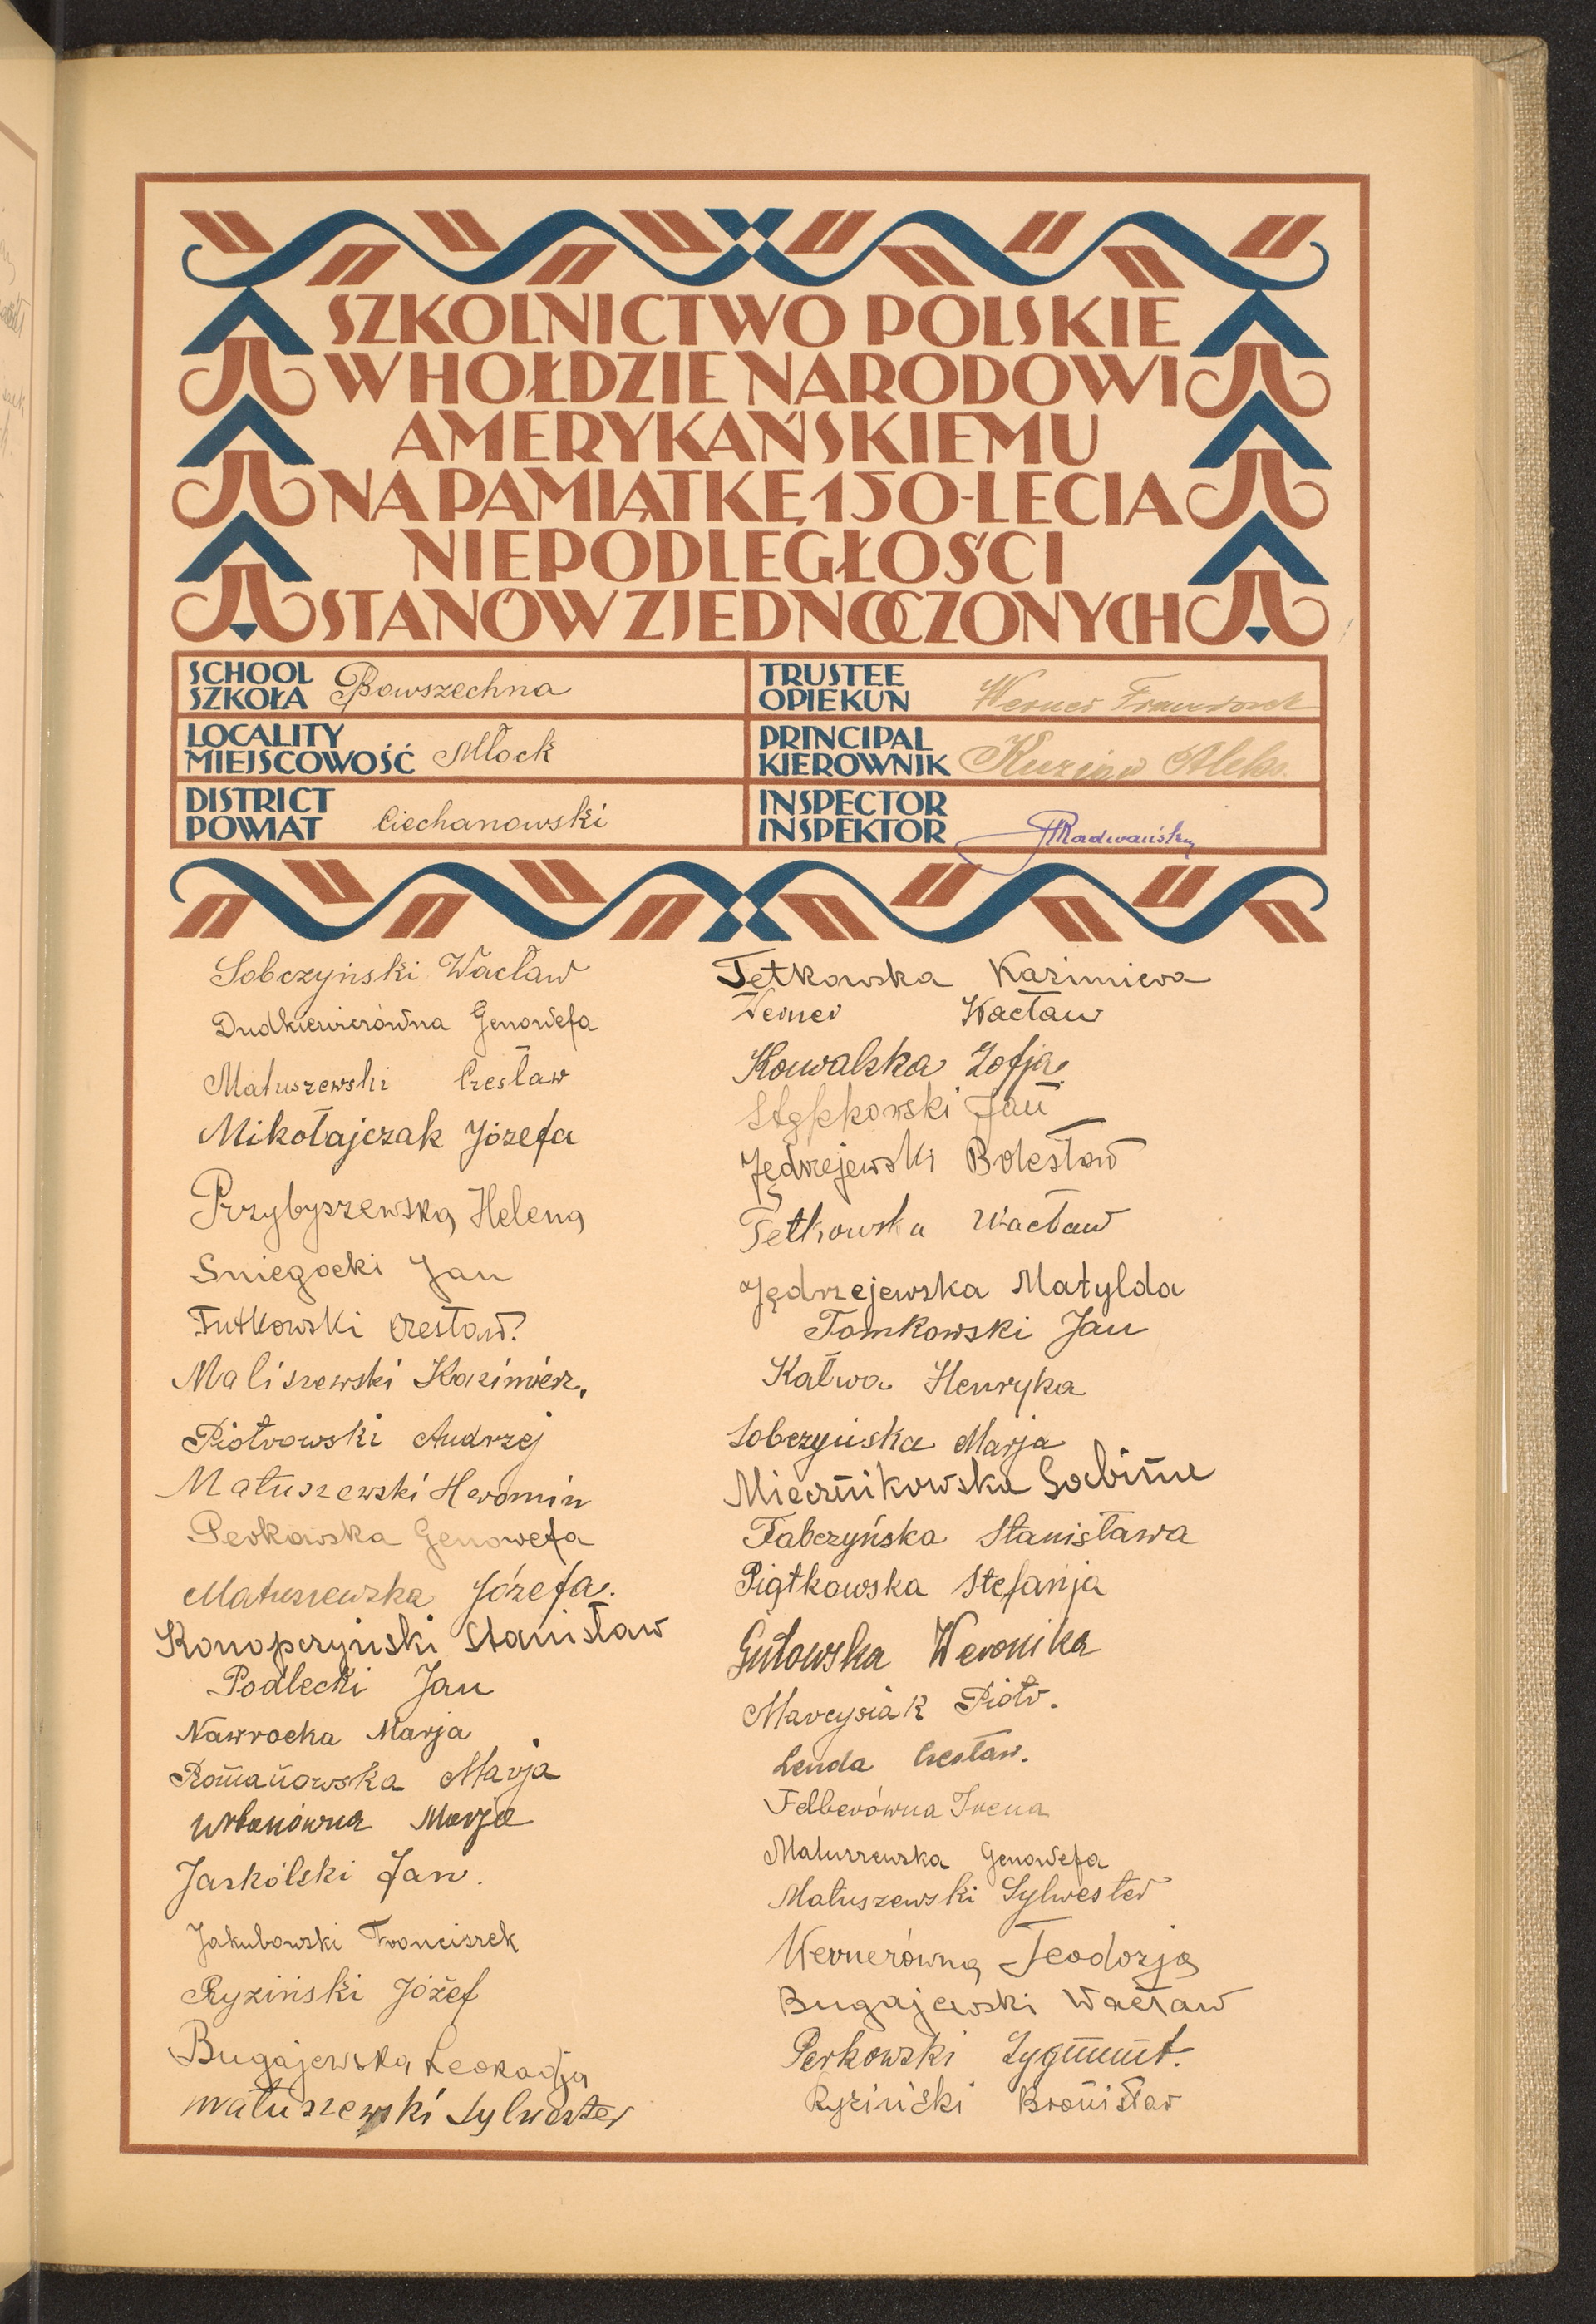 SZKOLNICTWO POLSKIE
W HOŁDZIE NARODOWI
AMERYKAŃSKIEMU
NA PAMIĄTKĘ 150-LECIA
NIEPODLEGŁOŚCI
STANÓW ZJEDNOCZONYCH
SCHOOL
SZKOŁA Powszechna
LOCALITY
MIEJSCOWOŚĆ Młock
DISTRICT
POWIAT Ciechanowski
TRUSTEE
OPIEKUN Werner
PRINCIPAL
KIEROWNIK Aleks.
INSPECTOR
INSPEKTOR Radwański
Sobczyński Wacław
Dudkiewiczówna Genowefa
Matuszewski Czesław
Mikołajczak Józefa
Przybyszewska Helena
Sniegocki Jan
Futkowski Czesław.
Maliszewski Kazimierz.
Piotrowski Andrzej
Matuszewski Heromin
Perkowska Genowefa
Matuszewska Józefa.
Konopczyński Stanisław
Podlecki Jan
Nawrocka Marja
Romanowska Marja
Urbanówna Marja
Jaskólski Jan.
Jakubowski Franciszek
Ryziński Józef
Bugajewska Leokadja
Matuszewski Sylwester
Tetkowska Kazimiera
Werner Wacław
Kowalska Zofja.
Stępkowski Jan
Jędrzejewski Bolesław
Tetkowska Wacław
Jędrzejewska Matylda
Tomkowski Jan
Kałwa Henryka
Sobczyńska Marja
Miecznikowska Sabina
Fabczyńska Stanisława
Piątkowska Stefanja
Gutowska Weronika
Marcysiak Piotr.
Lenda Czesław.
Felberówna Irena
Matuszewska Genowefa
Matuszewski Sylwester
Wernerówna Teodozja
Bugajewski Wacław
Perkowski Zygmunt.
Ryziński Bronisław